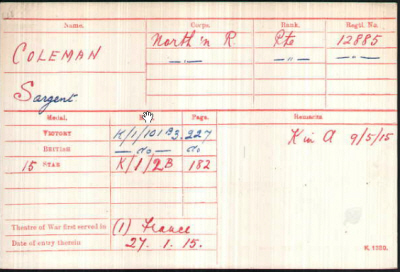 Name. Corps. Rank. Regtl. No.
COLEMAN North'n R. Pte 12885
—"— —"— —"—
Sargent
Medal. Page. Remarks.
VICTORY K/1/101 B3. 227 K in A 9/5/15
BRITISH — do — do
15 STAR K/1/2B 182
Theatre of War first served in (1) France
Date of entry therein 27. 1. 15.